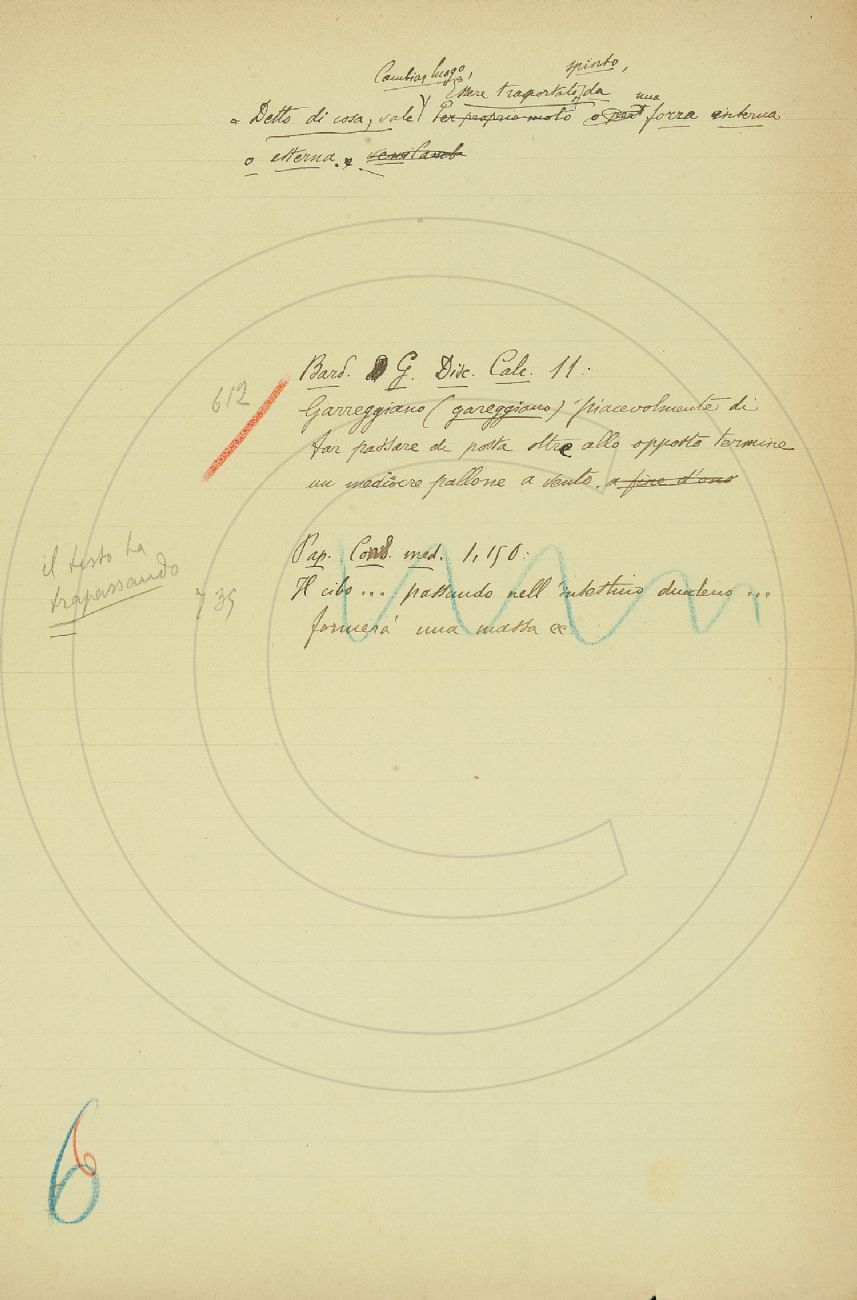 Cambiar luogo, spinto,
Essere trasportato da una
Detto di cosa, vale Per proprio moto o per forza interna
o esterna.
Bard. G. Disc. Calc. 11:
612
Garreggiano (gareggiano) piacevolmente di
far passare di posta oltre allo opposto termine
un mediocre pallone a vento. a fine d'ono
il testo ha
trapassando
Pap. Cons. med. 1, 150:
735
Il cibo ... passando nell'intestino duodeno ...
formerà una massa ec
6
6